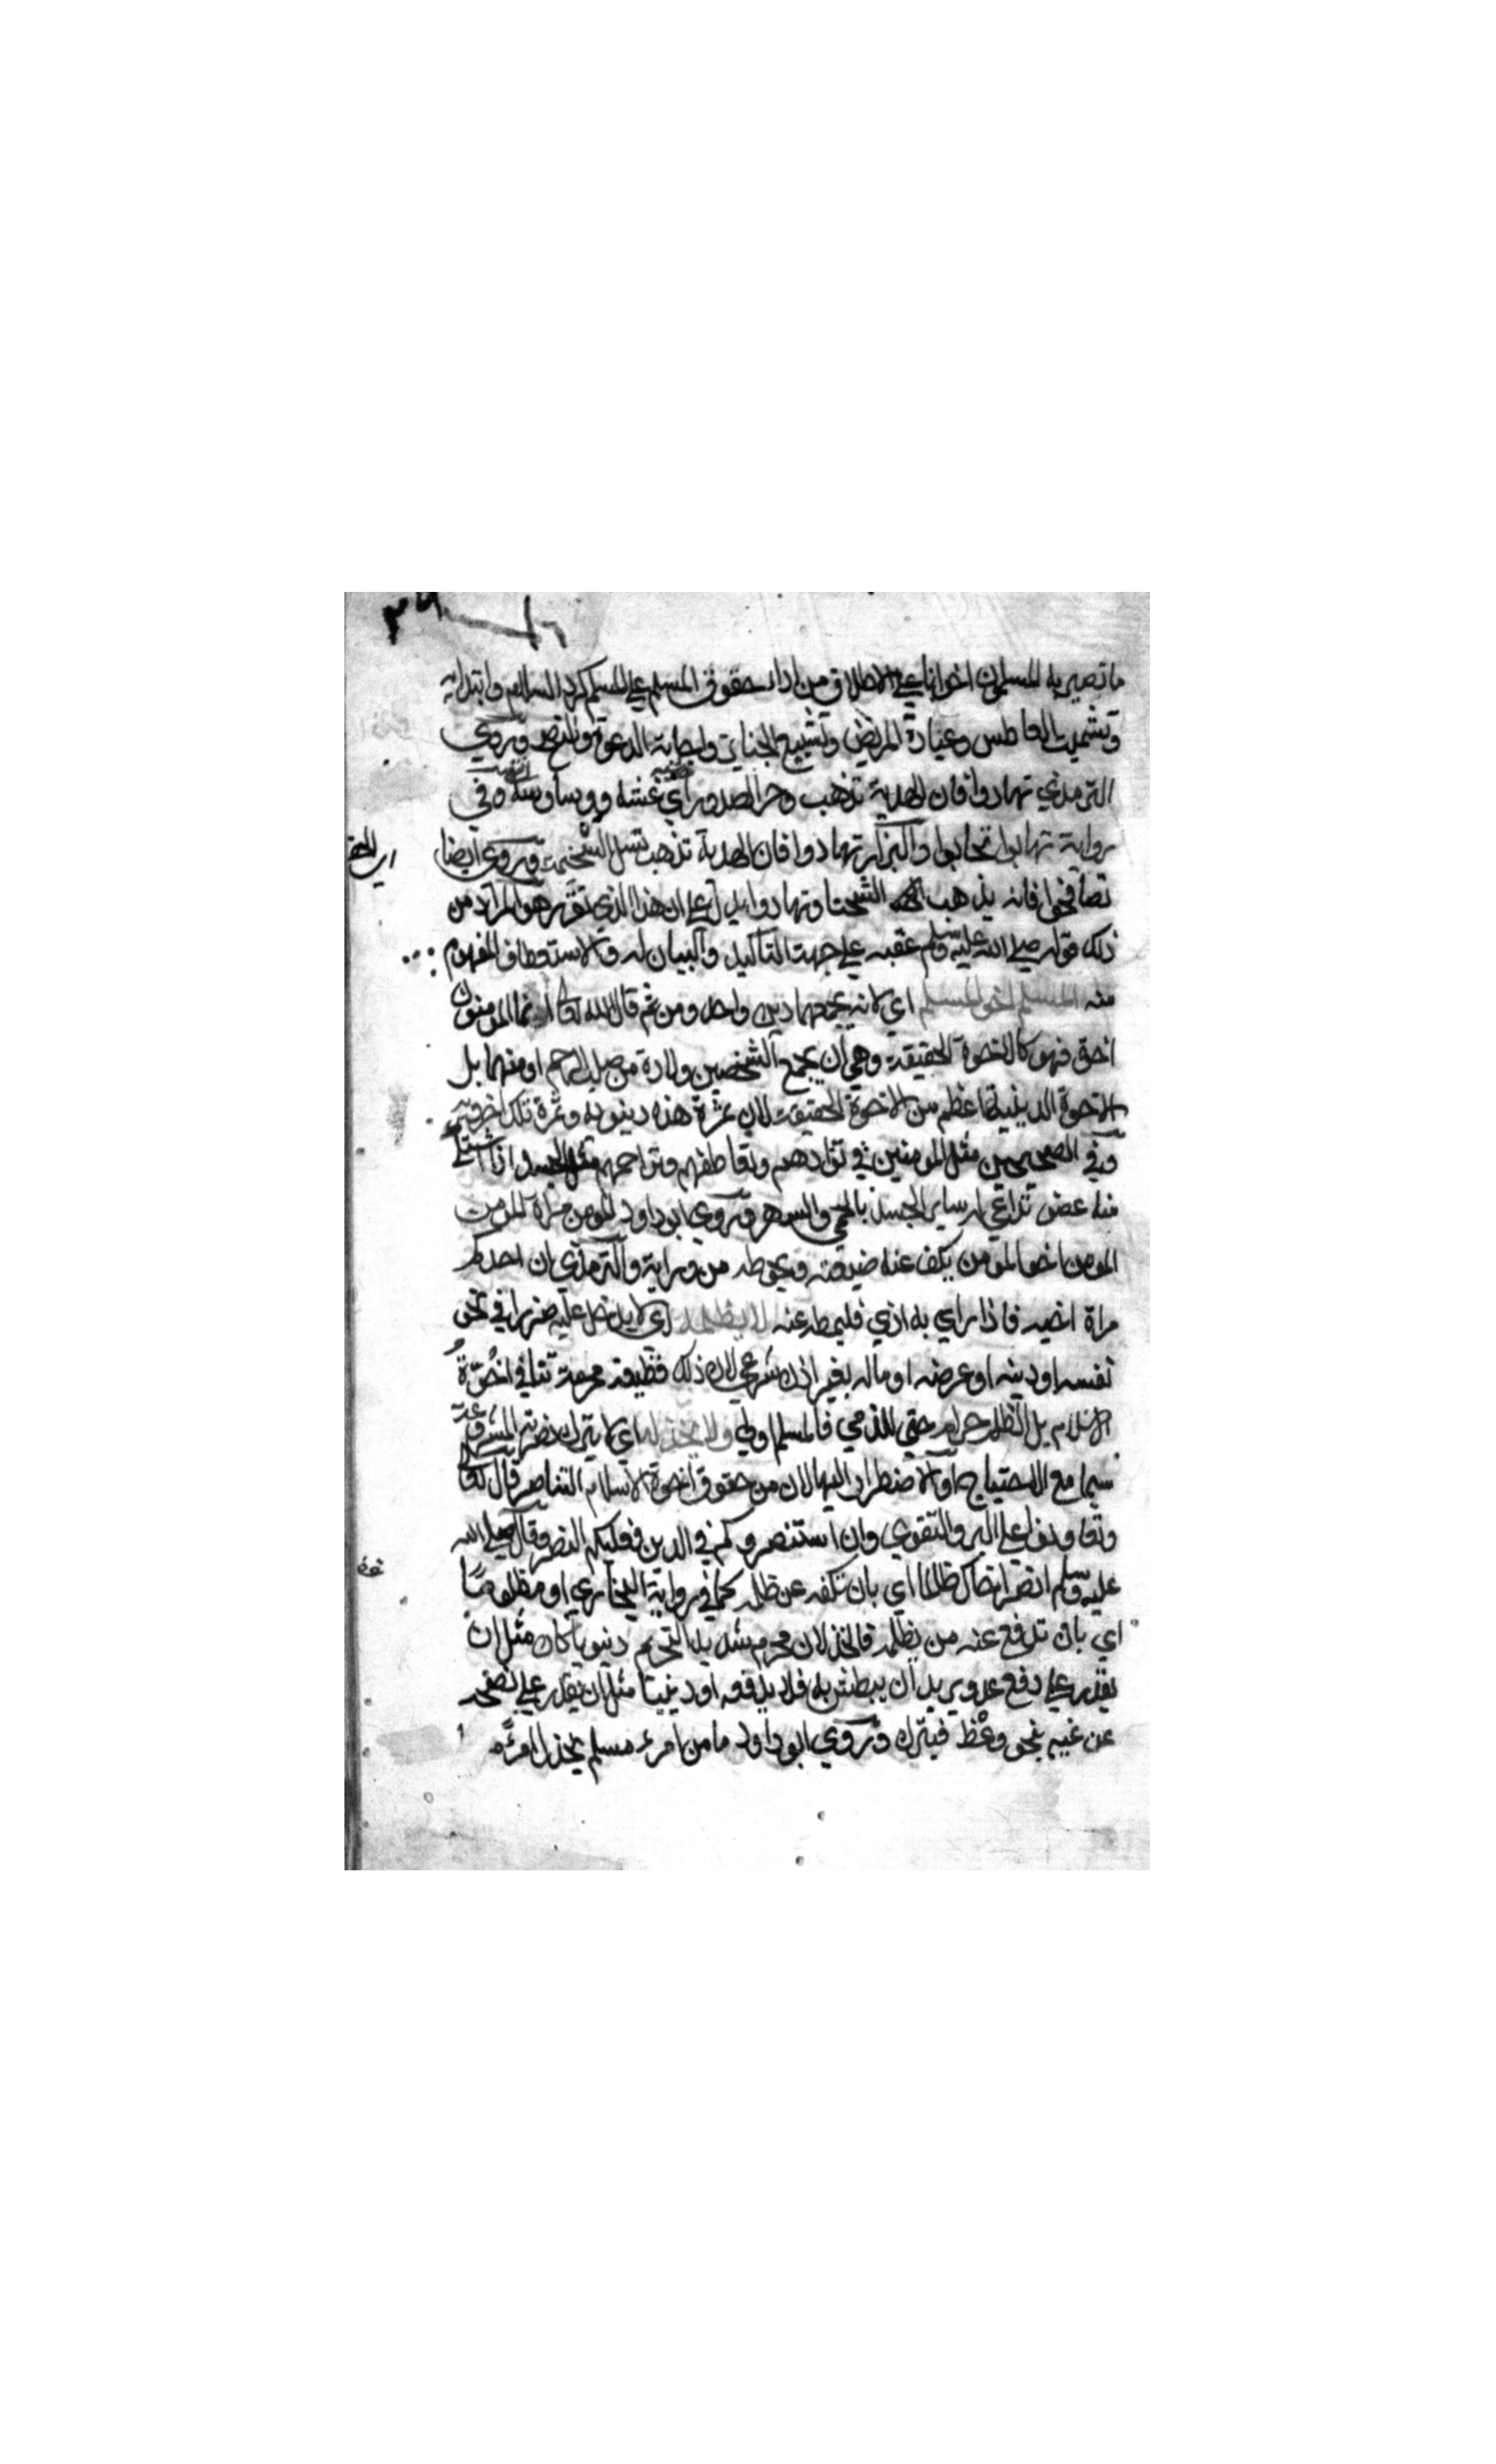 ما تصير به المسلمون اخوانا علي الاطلاق من اداء حقوق المسلم علي المسلم كرد السلام وابتدايه
وتشميت العاطس وعيادة المريض وتشييع الجنايز واجابة الدعوة والنصح وروي
الترمذي تهادوا فان الهدية تذهب وحر الصدور اي غشه ووساوسه وفي
رواية تهابوا تحابوا والبزار تهادوا فان الهدية تذهب تسل السخيمة وروي ايضا
تصافحوا فانه يذهب الشحنا وتهادوا يدل علي ان هذا الذي تقرر هو المراد من
ذلك قوله صلي الله عليه وسلم عقبه علي جهت التاكيد والبيان له والاستعطاف المفهوم
منه المسلم اخو المسلم اي لانه يجمعهما دين واحد ومن ثم قال الله تعا انما المومنون
اخوة فهو كالاخوة الحقيقة وهي ان يجمع الشخصين ولادة من صلب او رحم او منهما بل
الاخوة الدينية اعظم من الاخوة الحقيقة لان ثمرة هذه دينويه وثمرة تلك اخروية
وفي الصحيحين مثل المومنين في توادهم وتعاطفهم وتراحمهم مثل الجسد اذا اشتكي
منه عضو تداعي له ساير الجسد بالحمي والسهر وروي ابو داود المومن مراة المومن
المومن اخو المومن يكف عنه ضيعته ويحوطه من ورايه والترمذي ان احدكم
مراة اخيه فاذا راي به اذي فليمطه عنه لا يظلمه اي لا يدخل عليه ضررا في نحو
نفسه او دينه او عرضه او ماله بغير اذن شرعي لان ذلك قطيعة محرمة تنافي اخوة
الاسلام بل الظلم حرام حتي للذمي فالمسلم اولي ولا يخذله اي لا يترك نصرته المشروعة
سيما مع الاحتياج او الاضطرار اليها لان من حقوق اخوة الاسلام التناصر قال تعا
وتعاونوا علي البر والتقوي وان استنصروكم في الدين فعليكم النصر وقال صلي الله
عليه وسلم انصر اخاك ظالما اي بان تكفه عن ظلمه كما في رواية البخاري او مظلوما
اي بان تدفع عنه من يظلمه فالخذلان محرم شديد التحريم دينويا كان مثل ان
يقدر علي دفع عدو يريد ان يبطش به فلا يدفعه او دينيا مثل ان يقدر علي نصحه
عن غيه بنحو وعظ فيترك وروي ابو داود ما من امرء مسلم يخذل امرءا